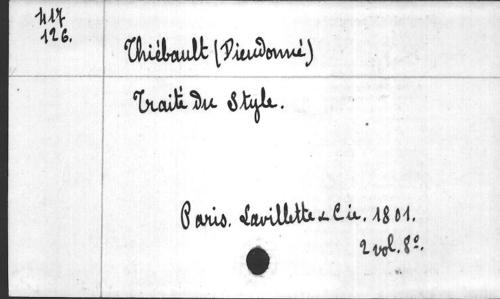 417
126.
Thiébault (Dieudonné)
Traité du Style.
Paris. Lavillette & Cie. 1801.
2 vol. 8º.